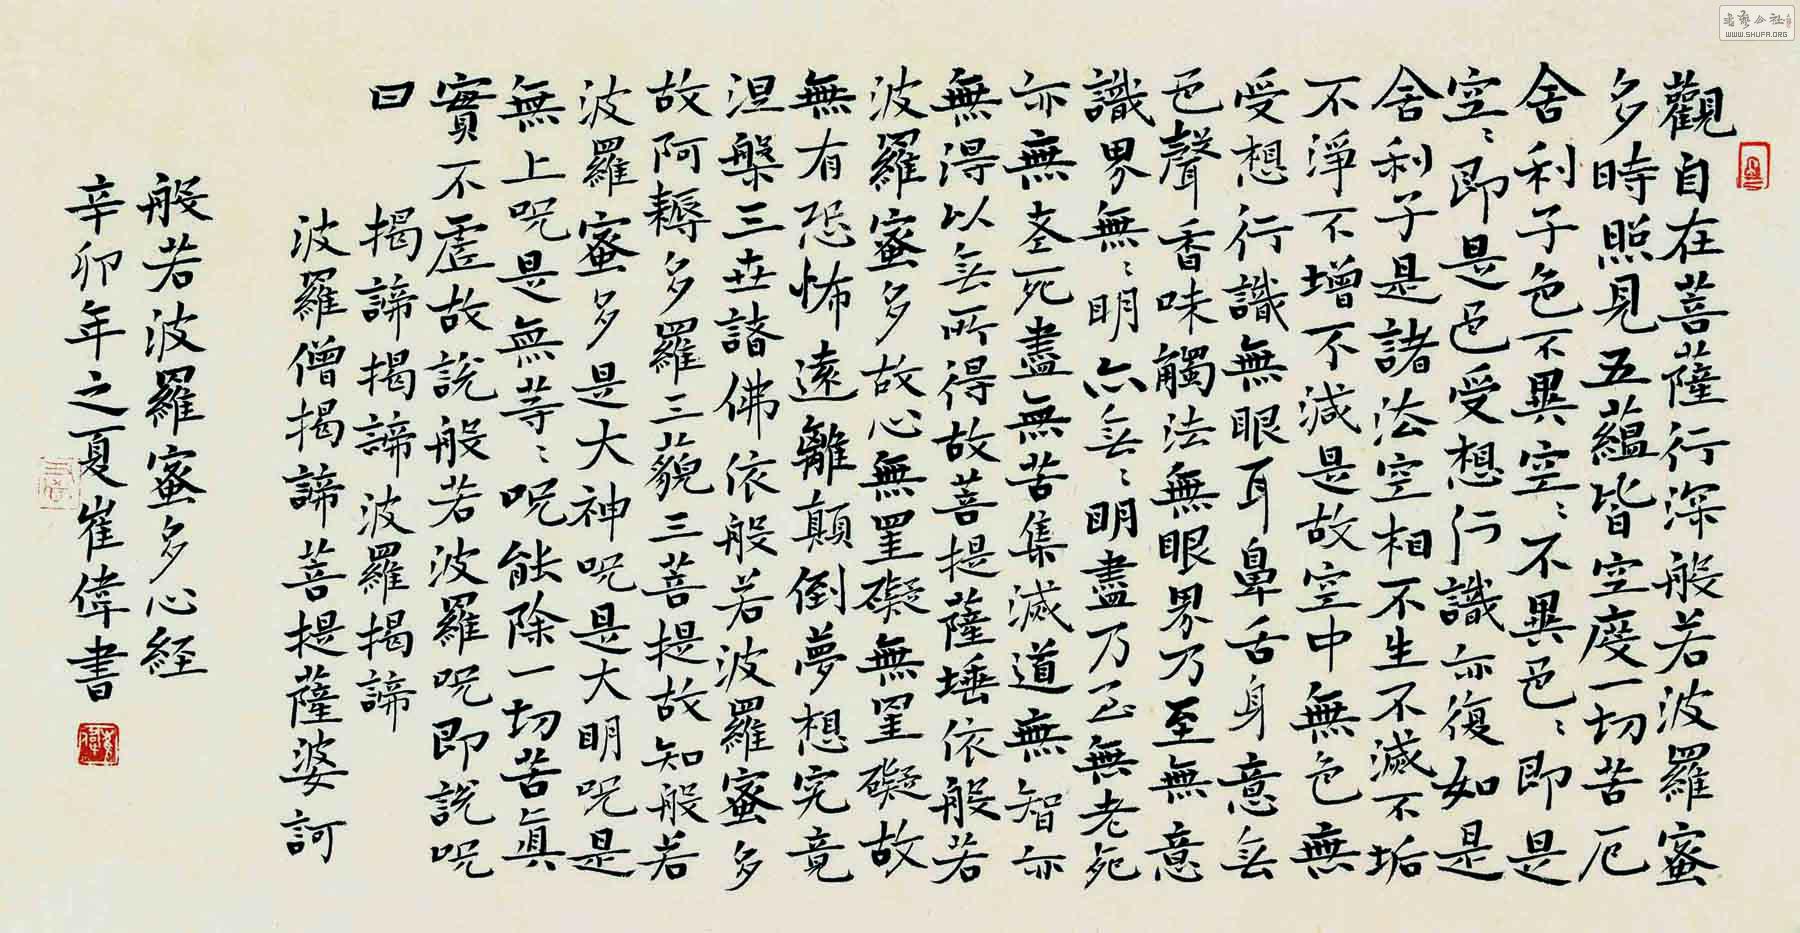 觀自在菩薩行深般若波羅蜜
多時照見五蘊皆空度一切苦厄
舍利子色不異空〻不異色〻即是
空〻即是色受想行識亦復如是
舍利子是諸法空相不生不滅不垢
不淨不增不減是故空中無色無
受想行識無眼耳鼻舌身意无
色聲香味觸法無眼界乃至無意
識界無〻明亦无〻明盡乃至無老死
亦無老死盡無苦集滅道無智亦
無得以无所得故菩提薩埵依般若
波羅蜜多故心無罣礙無罣礙故
無有恐怖遠離顛倒夢想究竟
涅槃三世諸佛依般若波羅蜜多
故阿耨多羅三藐三菩提故知般若
波羅蜜多是大神呪是大明呪是
無上呪是無等〻呪能除一切苦真
實不虛故說般若波羅呪即說呪
曰 揭諦揭諦波羅揭諦
波羅僧揭諦菩提薩婆訶
般若波羅蜜多心経
辛卯年之夏崔偉書
WWW.SHUFA.ORG